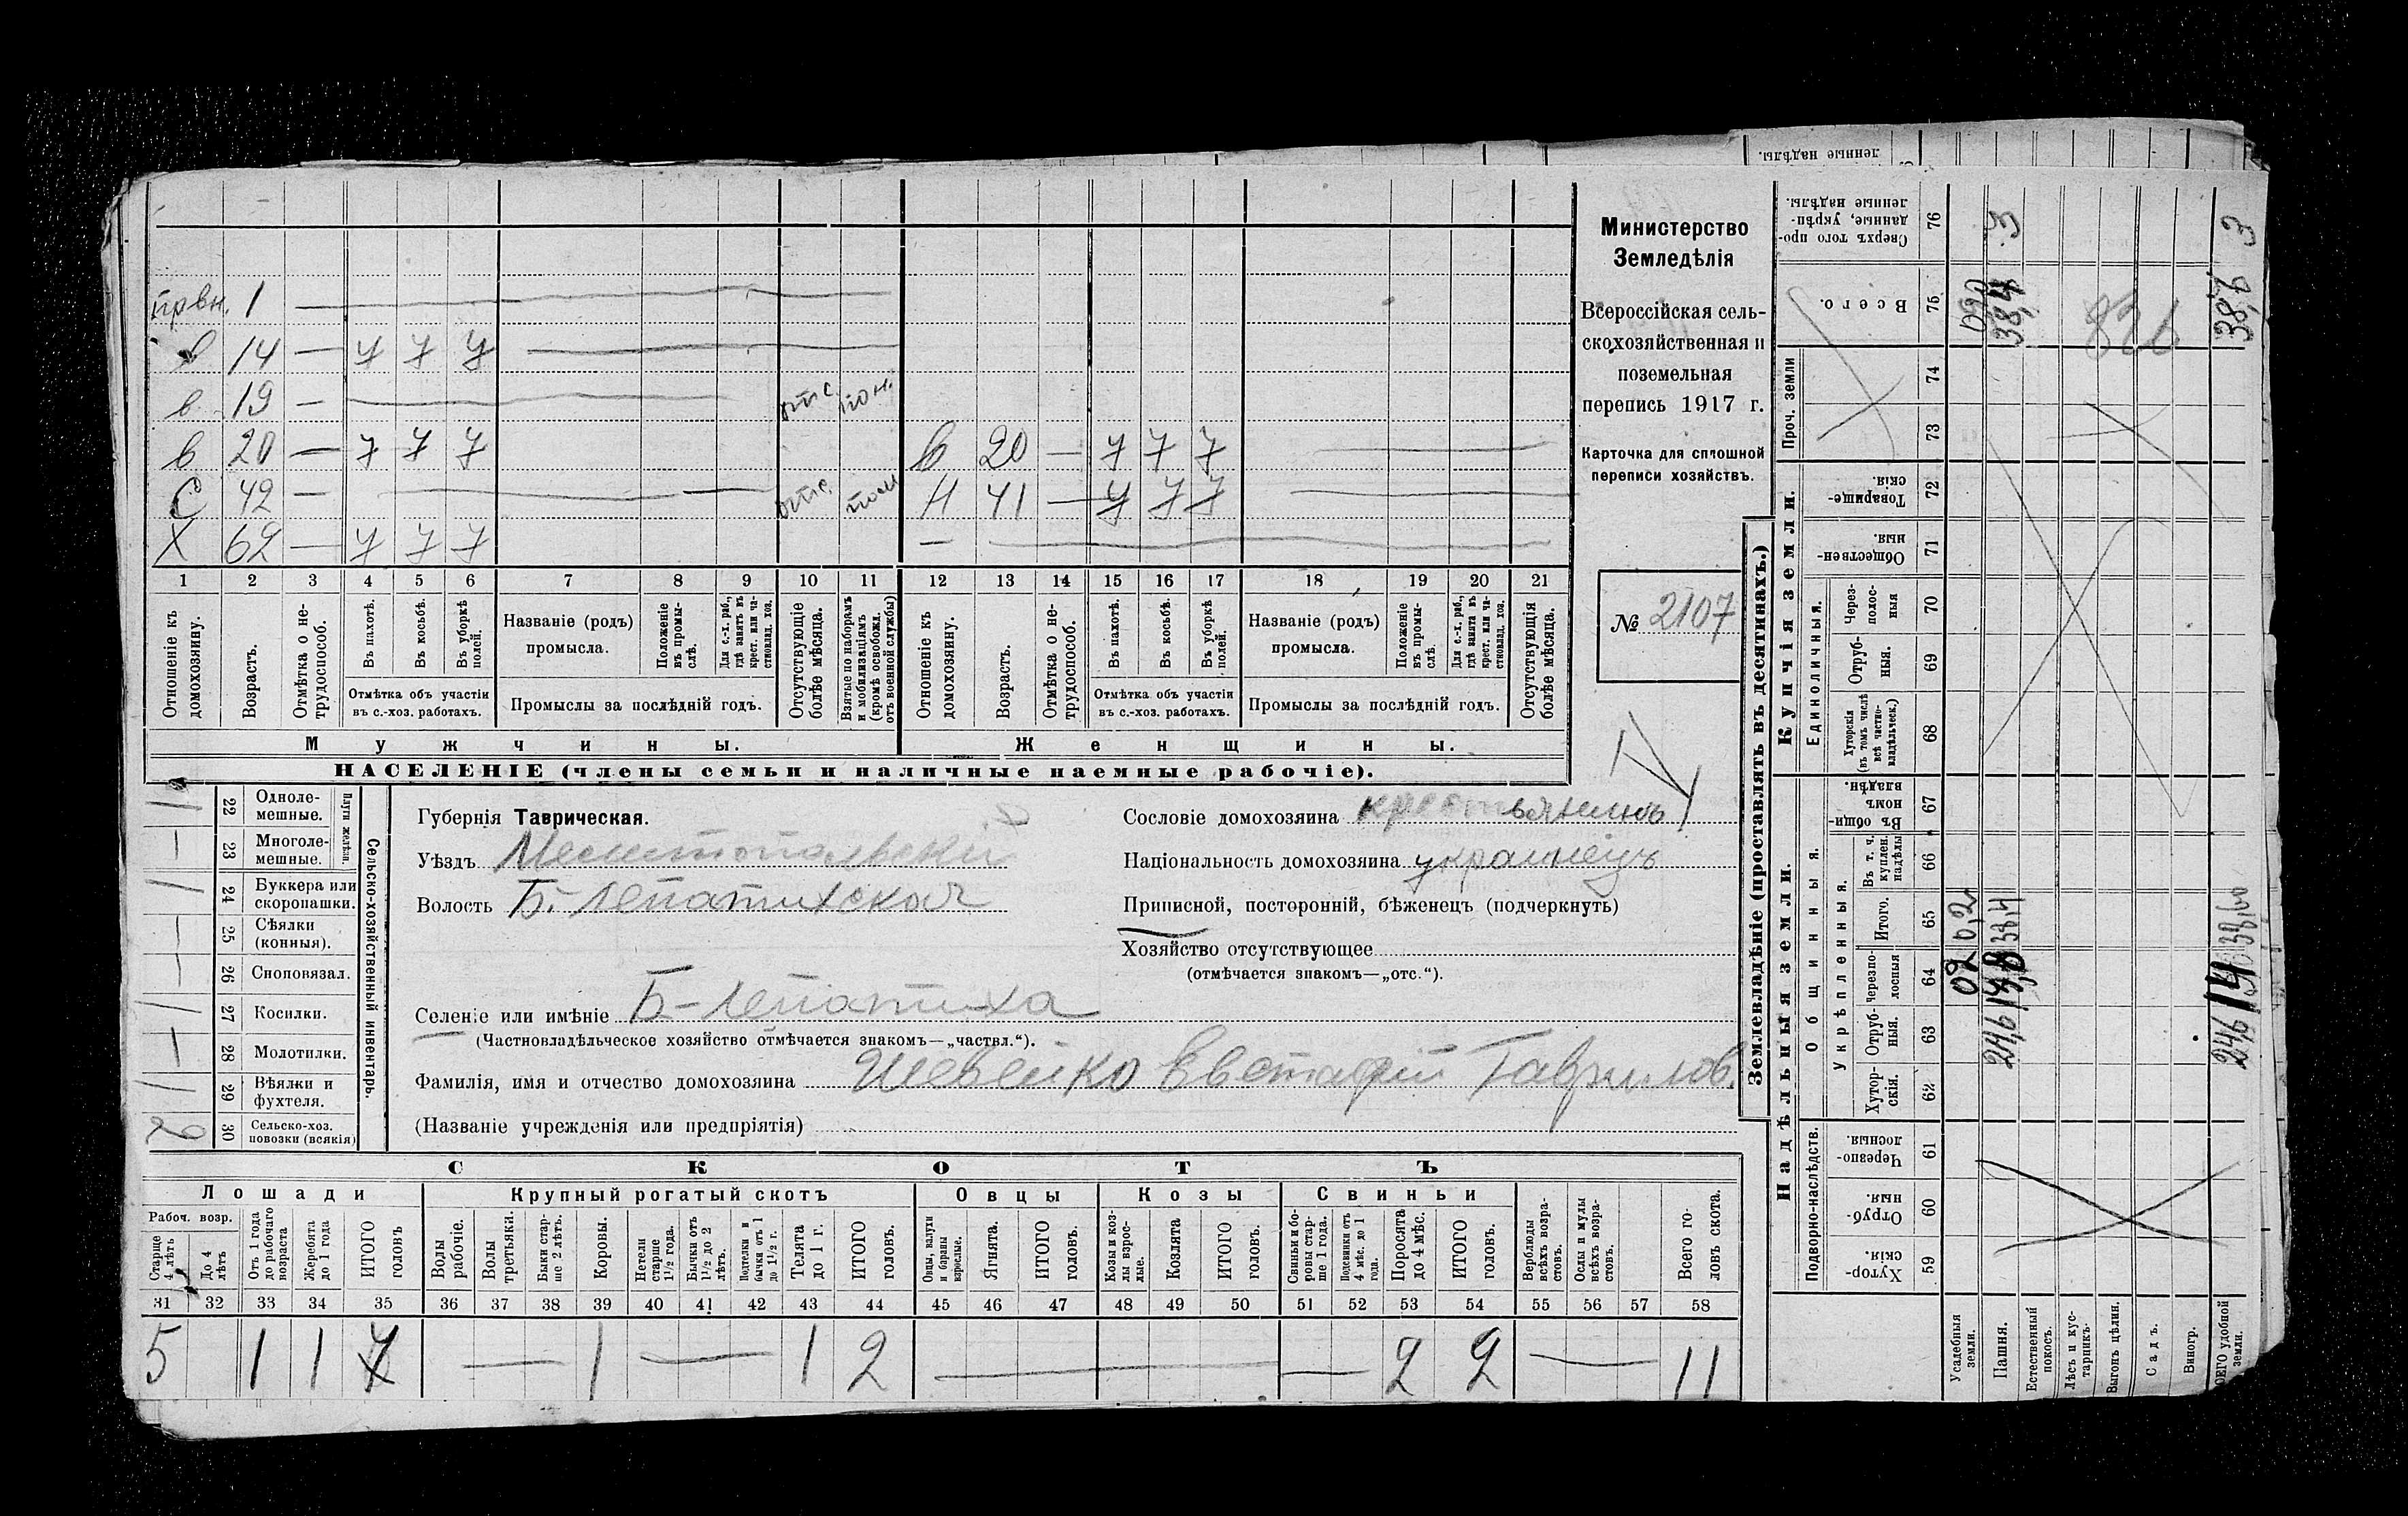 првн. 1 —
в 14 — 7 7 7
в 19 — отс пон.
в 20 — 7 7 7 в 20 — 7 7 7
С 42 — отс. Н 41 — 7 7 7
Х 62 — 7 7 7 —
1 2 3 4 5 6 7 8 9 10 11 12 13 14 15 16 17 18 19 20 21
Отношеніе къ домохозяину.
Возрастъ.
Отмѣтка о нетрудоспособ.
Въ пахотѣ.
Въ косьбѣ.
Въ уборкѣ полей.
Отмѣтка объ участіи
въ с.-хоз. работахъ.
Названіе (родъ)
промысла.
Положеніе въ промыслѣ.
Для с.-х. раб., гдѣ занятъ въ крест. или частновлад. хоз.
Промыслы за послѣдній годъ.
Отсутствующіе болѣе мѣсяца.
Взятые по наборамъ и мобилизаціямъ (кромѣ освобожд. отъ военной службы)
Отношеніе къ домохозяину.
Возрастъ.
Отмѣтка о нетрудоспособ.
Въ пахотѣ.
Въ косьбѣ.
Въ уборкѣ полей.
Отмѣтка объ участіи
въ с.-хоз. работахъ.
Названіе (родъ)
промысла.
Положеніе въ промыслѣ.
Для с.-х. раб., гдѣ занята въ крест. или частновлад. хоз.
Промыслы за послѣдній годъ.
Отсутствующія болѣе мѣсяца.
Мужчины. Женщины.
НАСЕЛЕНІЕ (члены семьи и наличные наемные рабочіе).
Министерство
Земледѣлія
Всероссійская сель-
скохозяйственная и
поземельная
перепись 1917 г.
Карточка для сплошной
переписи хозяйствъ.
№ 2107
Сельско-хозяйственный инвентарь.
Плуги желѣзн.
1 22 Одноле-
мешные.
— 23 Многоле-
мешные.
1 24 Буккера или
скоропашки.
— 25 Сѣялки
(конныя).
— 26 Сноповязал.
1 27 Косилки.
— 28 Молотилки.
1 29 Вѣялки и
фухтеля.
2 30 Сельско-хоз.
повозки (всякія)
Губернія Таврическая.
Уѣздъ Мелитопольскій
Волость Б. Лепатихская
Сословіе домохозяина крестьянинъ
Національность домохозяина украинецъ
Приписной, посторонній, бѣженецъ (подчеркнуть)
Хозяйство отсутствующее
(отмѣчается знакомъ—„отс.“).
Селеніе или имѣніе Б-Лепатиха
(Частновладѣльческое хозяйство отмѣчается знакомъ—„частвл.“).
Фамилія, имя и отчество домохозяина Шевейко Евстафій Гаврилов.
(Названіе учрежденія или предпріятія)
СКОТЪ
Лошади Крупный рогатый скотъ Овцы Козы Свиньи
Рабоч. возр.
Старше 4 лѣтъ
До 4 лѣтъ
Отъ 1 года до рабочаго возраста
Жеребята до 1 года
ИТОГО головъ
Волы рабочіе.
Волы третьяки.
Быки старше 2 лѣтъ.
Коровы.
Нетели старше 1½ года.
Бычки отъ 1½ до 2 лѣтъ.
Подтелки и бычки отъ 1 до 1½ г.
Телята до 1 г.
ИТОГО головъ.
Овцы, валухи и бараны взрослые.
Ягнята.
ИТОГО головъ.
Козы и козлы взрослые.
Козлята
ИТОГО головъ.
Свиньи и боровы старше 1 года.
Подсвинки отъ 4 мѣс. до 1 года.
Поросята до 4 мѣс.
ИТОГО головъ.
Верблюды всѣхъ возрастовъ.
Ослы и мулы всѣхъ возрастовъ.
Всего головъ скота.
31 32 33 34 35 36 37 38 39 40 41 42 43 44 45 46 47 48 49 50 51 52 53 54 55 56 57 58
5 1 1 7 — 1 — 1 2 — — 2 2 — 11
Землевладѣніе (проставлять въ десятинахъ.)
Надѣльныя земли. Купчія земли.
Подворно-наслѣдств. Общинныя. Единоличныя. Проч. земли
Укрѣпленныя.
59 Хуторскія.
60 Отрубныя.
61 Черезполосныя.
62 Хуторскія.
63 Отрубныя.
64 Черезполосныя
65 Итого.
66 Въ т. ч. куплен. надѣлы
67 Въ общинномъ владѣн.
68 Хуторскія (въ томъ числѣ всѣ частновладѣльческ.)
69 Отрубныя.
70 Черезполосныя
71 Общественныя.
72 Товарищескія.
73
74
75 Всего.
76 Сверхъ того проданные, укрѣпленные надѣлы.
ленные надѣлы.
Усадебныя земли. 02 0,2 020
Пашня. 24,6 13,8 38,4 38,4 3
Естественный покосъ.
Лѣсъ и кустарникъ.
Выгонъ цѣлин.
Садъ.
Виногр.
ВСЕГО удобной земли. 24,6 14 38,6 38,6 3
826